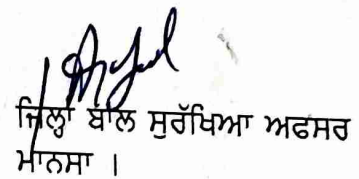 ਜ਼ਿਲ੍ਹਾ ਬਾਲ ਸੁਰੱਖਿਆ ਅਫਸਰ
ਮਾਨਸਾ ।